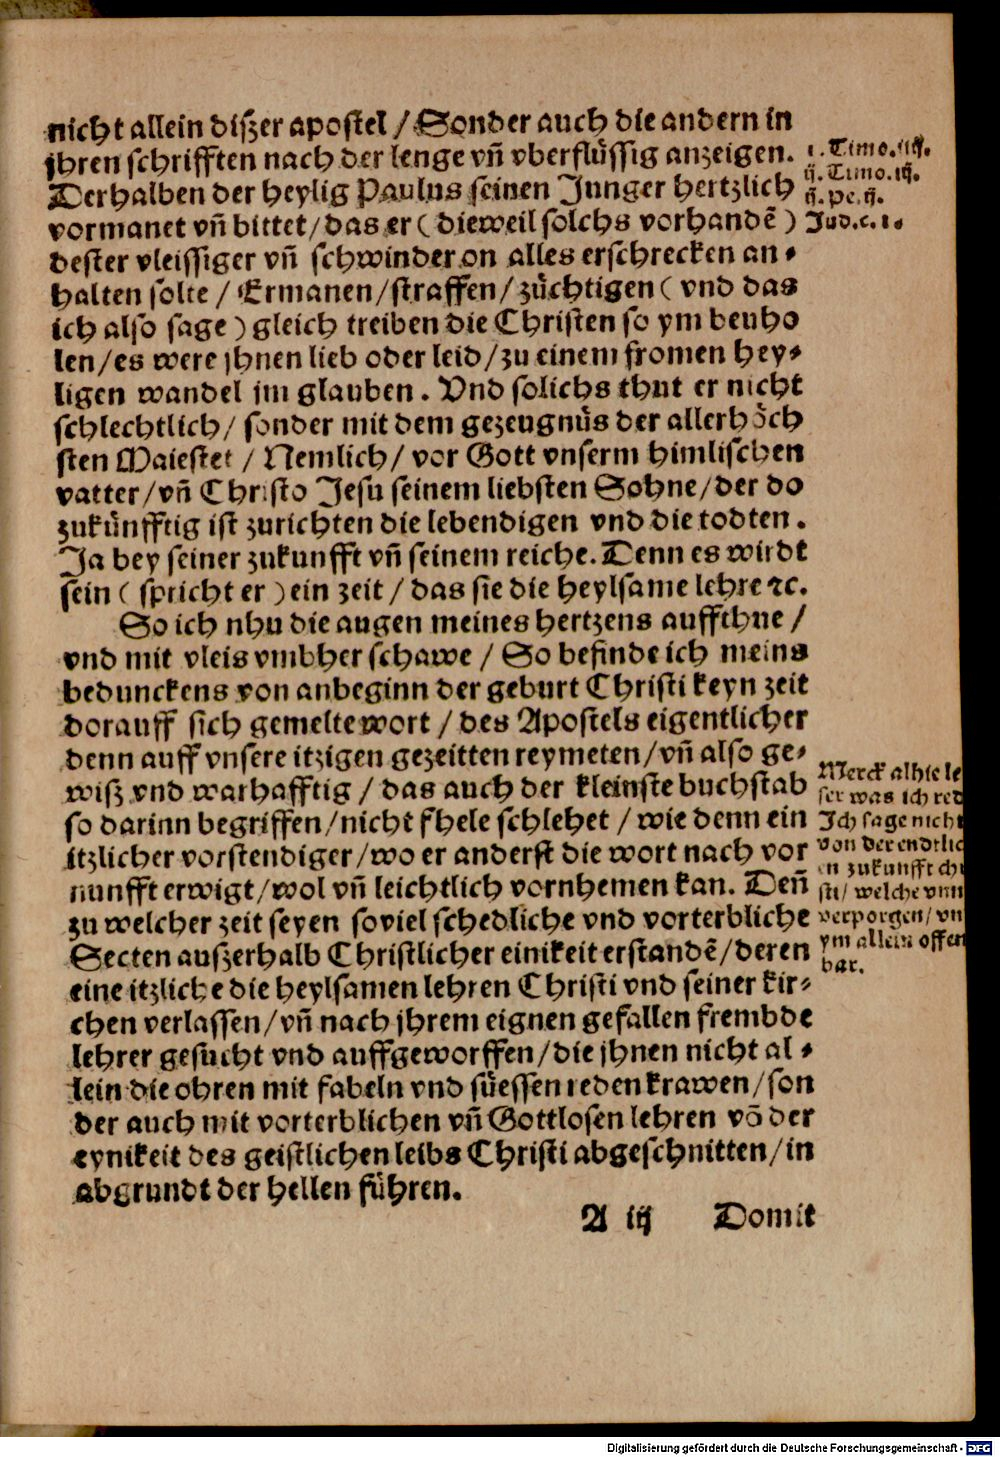 nicht allein diszer apostel / Sonder auch die andern in
jhren schrifften nach der lenge vñ vberflüssig anzeigen.
Derhalben der heylig Paulus seinen Junger hertzlich
vormanet vñ bittet / das er ( dieweil solchs vorhandẽ )
dester vleissiger vñ schwinder on alles erschrecken an⸗
halten solte / Ermanen / straffen / züchtigen ( vnd das
ich also sage ) gleich treiben die Christen so ym beuho
len / es were jhnen lieb oder leid / zu einem fromen hey⸗
ligen wandel jm glauben . Vnd solichs thut er nicht
schlechtlich / sonder mit dem gezeugnüs der allerhöch
sten Maiestet / Nemlich / vor Gott vnserm himlischen
vatter / vñ Christo Jesu seinem liebsten Sohne / der do
zukünfftig ist zurichten die lebendigen vnd die todten .
Ja bey seiner zukunfft vñ seinem reiche. Denn es wirdt
sein ( spricht er ) ein zeit / das sie die heylsame lehre ꝛc.
So ich nhu die augen meines hertzens auffthue /
vnd mit vleis vmbher schawe / So befinde ich meins
beduncke­ns von anbeginn der geburt Christi keyn zeit
dorauff sich gemelte wort / des Apostels eigentlicher
denn auff vnsere itzigen gezeitten reymeten / vñ also ge⸗
wisz vnd warhafftig / das auch der kleinste buchstab
so darinn begriffen / nicht fhele schlehet / wie denn ein
itzlicher vorstendiger / wo er anderst die wort nach vor
nunfft erwigt / wol vñ leichtlich vornhemen kan. Deñ
zu welcher zeit seyen soviel schedliche vnd vorterbliche
Secten auszerhalb Christlicher einikeit erstandẽ / deren
eine itzliche die heylsamen lehren Christi vnd seiner kir⸗
chen verlassen / vñ nach jhrem eignen gefallen frembde
lehrer gesucht vnd auffgeworffen / die jhnen nicht al⸗
lein die ohren mit fabeln vnd süessen reden krawen / son
der auch mit vorterblichen vñ Gottlosen lehren võ der
eynikeit des geistlichen leibs Christi abgeschnitten / in
abgrundt der hellen führen.
A iij Domit
1. Timo. iiij.
ij. Timo. iij.
ij. pe. ij.
Jud. c. 1.
Merck alhie le
ser was ich red
Ich sage nicht
von der endtlic
en zukunfft chri
sti / welche vnn
verporgen / vn
ym allein offen
bar.
Digitalisierung gefördert durch die Deutsche Forschungsgemeinschaft - DFG